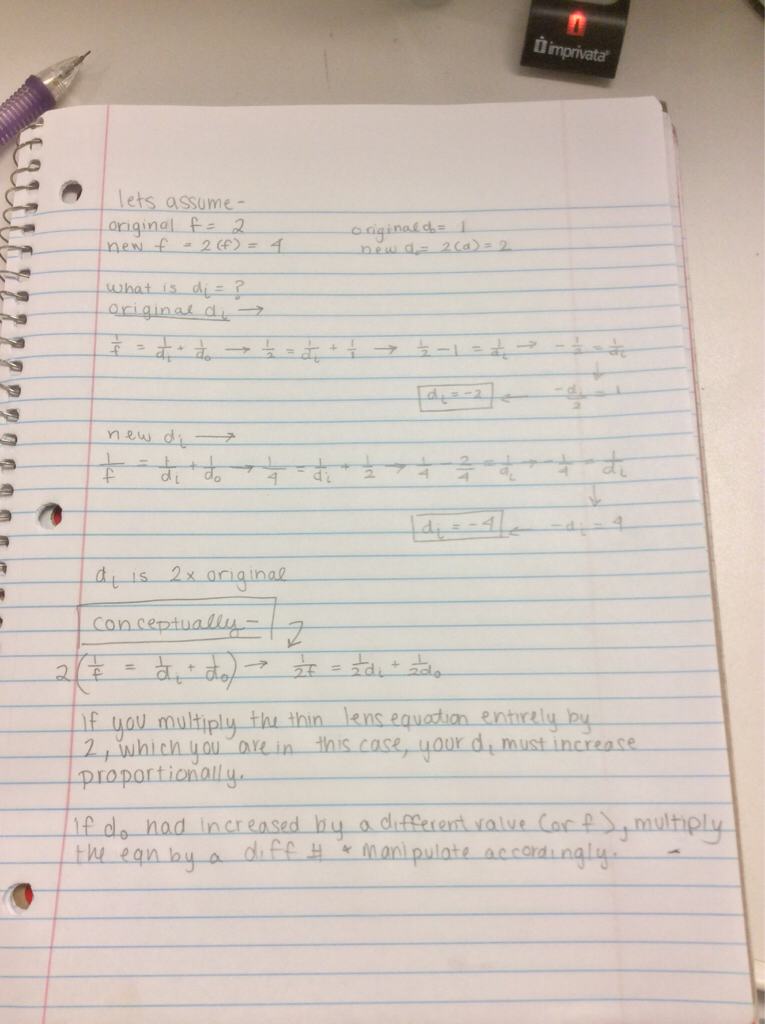 imprivata
lets assume-
original f = 2 original do = 1
new f = 2(f) = 4 new do = 2(d) = 2
what is di = ?
original di →
1/f = 1/di + 1/do → 1/2 = 1/di + 1/1 → 1/2 - 1 = 1/di → -1/2 = 1/di
↓
di = -2 ← -di/2 = 1
new di →
1/f = 1/di + 1/do → 1/4 = 1/di + 1/2 → 1/4 - 2/4 = 1/di → -1/4 = 1/di
↓
di = -4 ← -di = 4
di is 2x original
conceptually-
2(1/f = 1/di + 1/do) → 1/2f = 1/2di + 1/2do
If you multiply the thin lens equation entirely by
2, which you are in this case, your di must increase
proportionally.
If do had increased by a different value (or f), multiply
the eqn by a diff # + manipulate accordingly. -